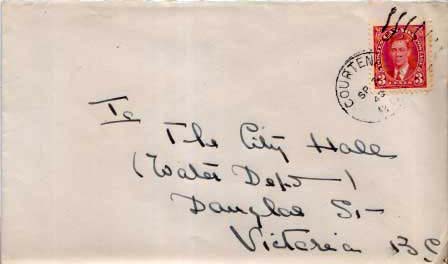 COURTEN
SP
43
3 3
To
The City Hall
(Water Dept—)
Douglas St—
Victoria B.C